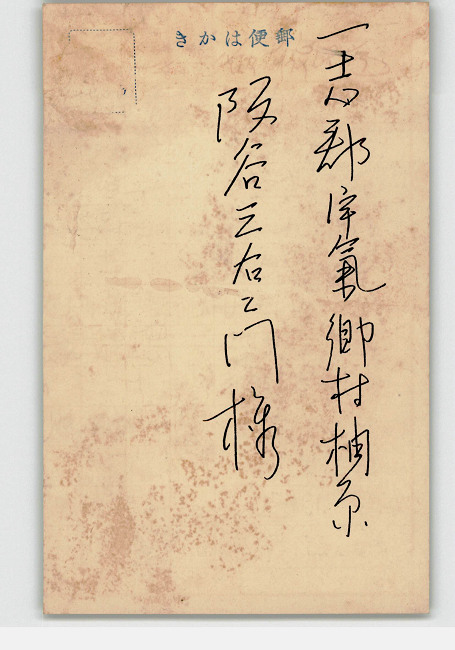 郵便はかき
一志郡宇氣郷村柚原
阪谷三右エ門様